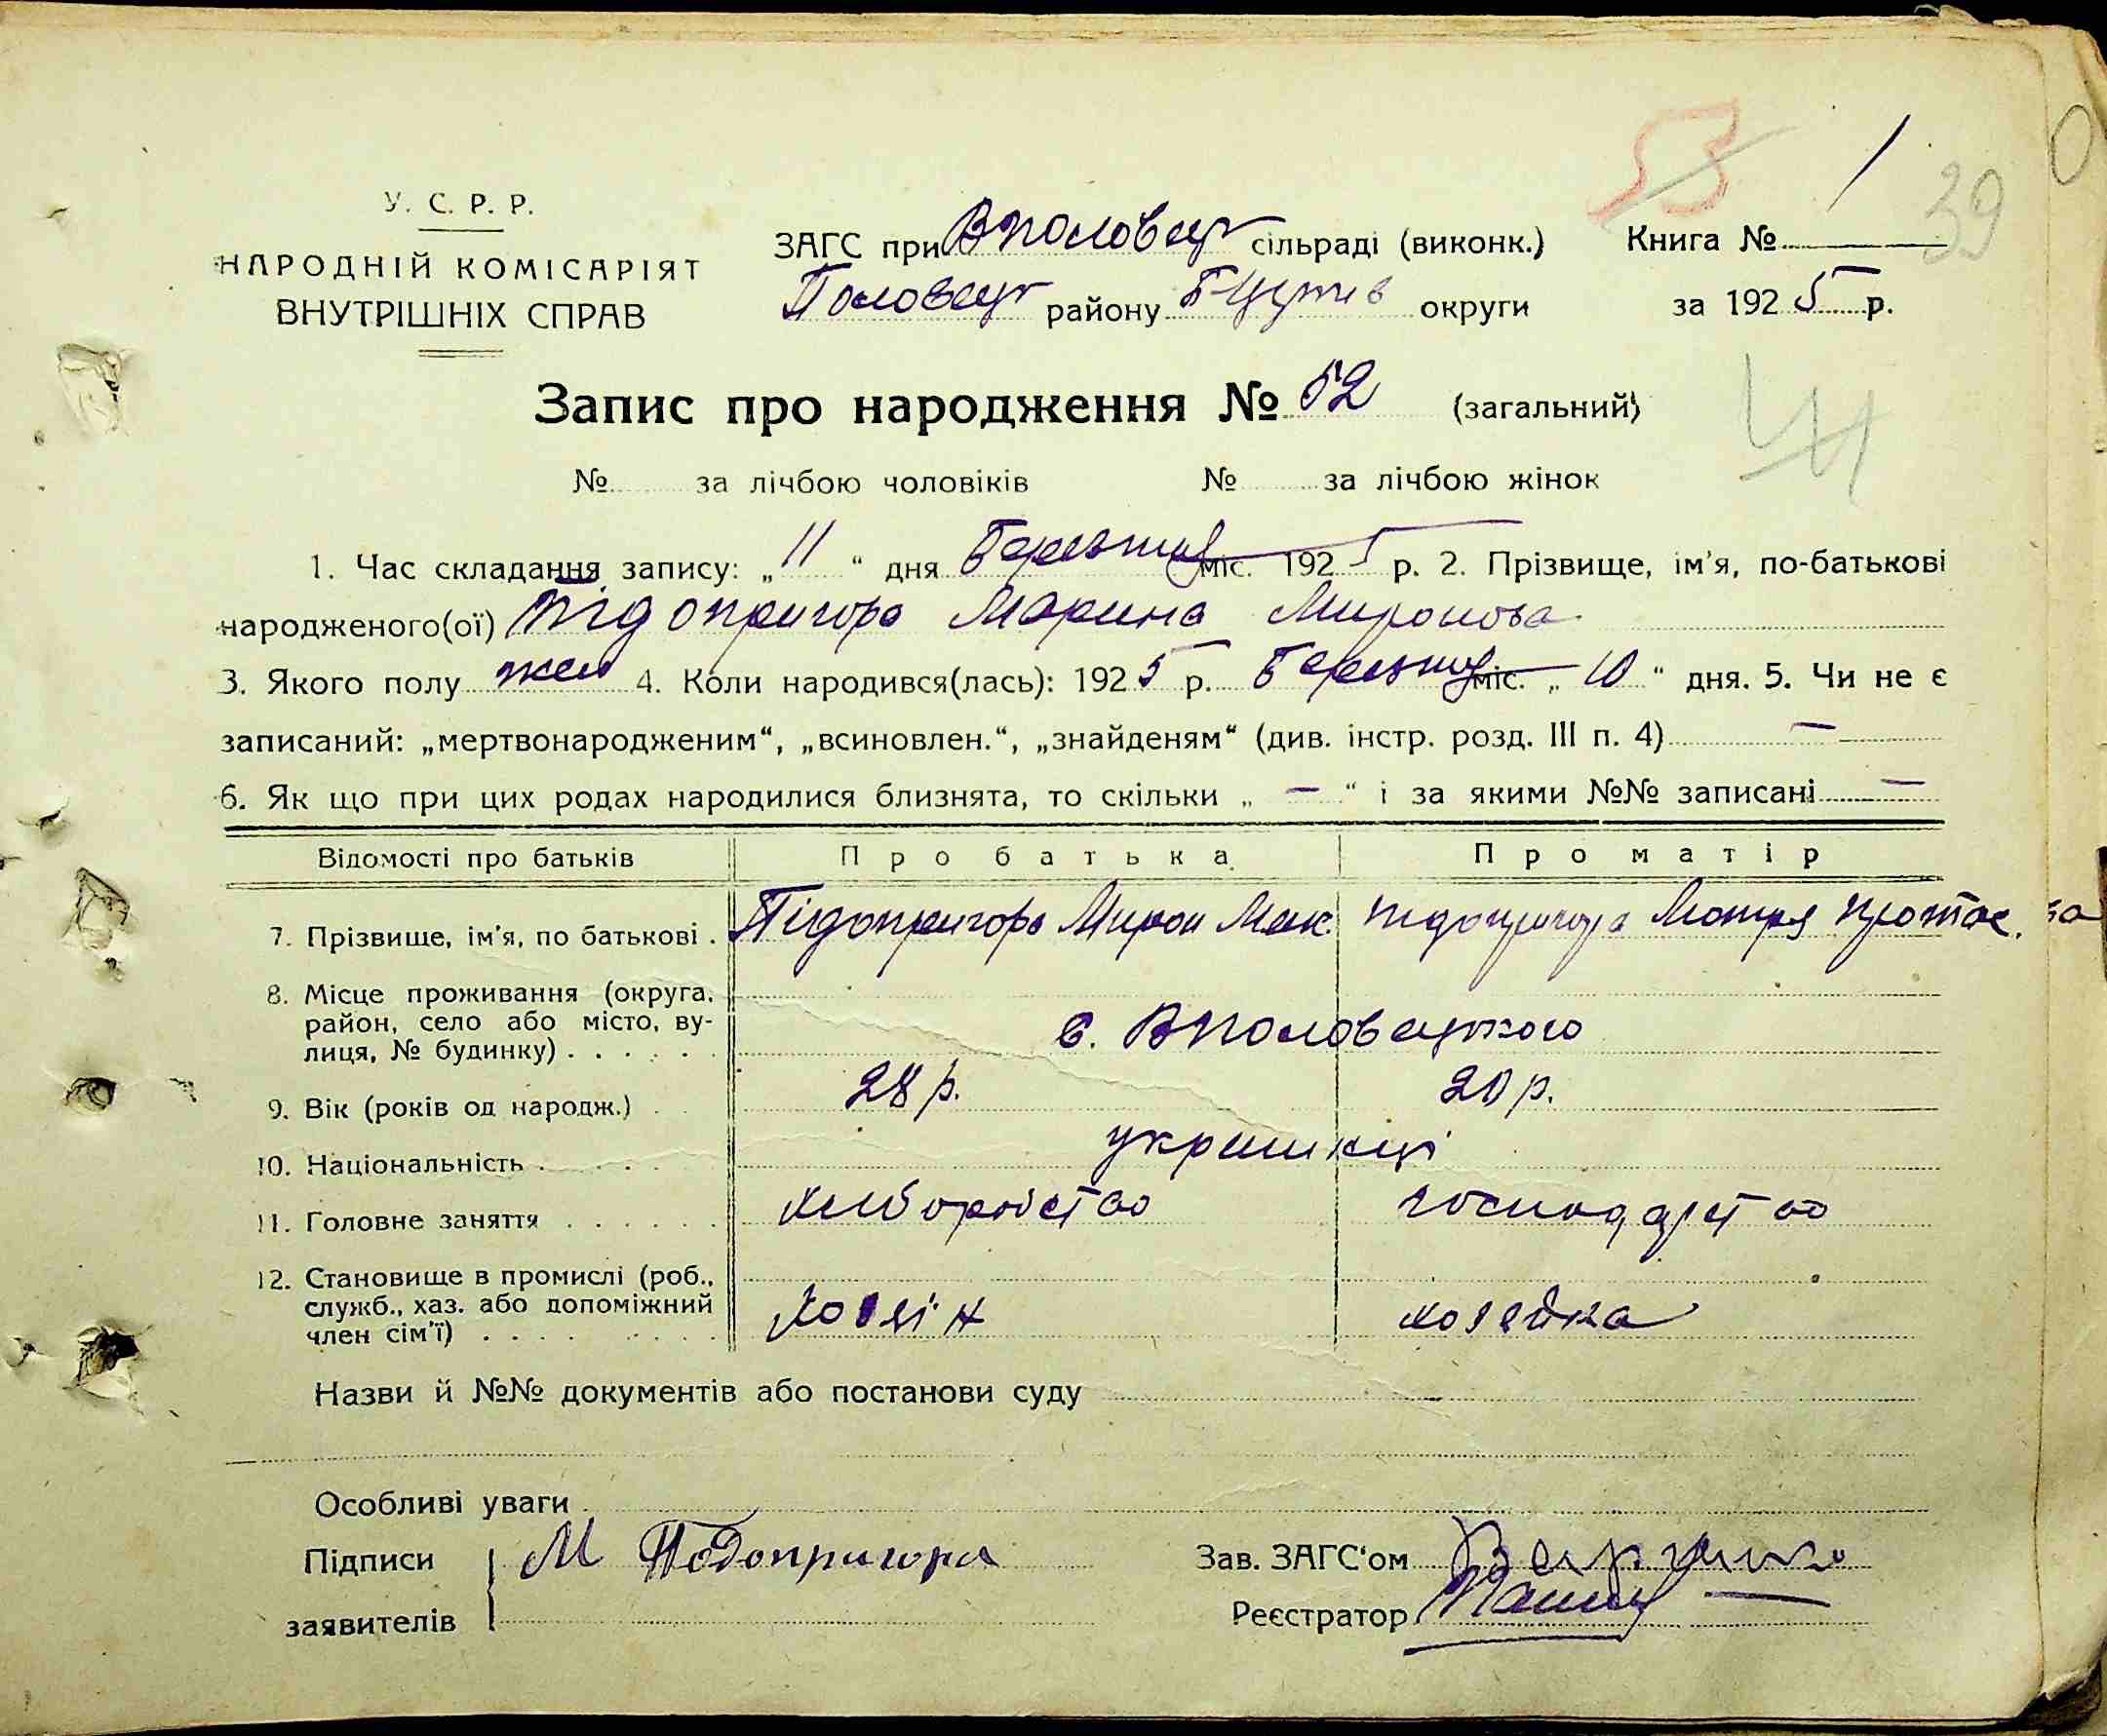 53 1 39
У. С. Р. Р.
НАРОДНІЙ КОМІСАРІЯТ
ВНУТРІШНІХ СПРАВ
ЗАГС при Вполовец сільраді (виконк.) Книга №
Половец району Б-Церків округи за 1925 р.
Запис про народження № 52 (загальний)
№ за лічбою чоловіків № за лічбою жінок
1. Час складання запису: „11“ дня Березня міс. 1925 р. 2. Прізвище, ім'я, по-батькові
народженого(ої) Підопригора Марина Миронова
3. Якого полу жен 4. Коли народився(лась): 1925 р. Березня міс. „10“ дня. 5. Чи не є
записаний: „мертвонародженим“, „всиновлен.“, „знайденям“ (див. інстр. розд. III п. 4) —
6. Як що при цих родах народилися близнята, то скільки „ — “ і за якими №№ записані —
Відомості про батьків Про батька Про матір
7. Прізвище, ім'я, по батькові . Підопригора Мирон Мак. Підопригора Мотря Протас.
8. Місце проживання (округа,
район, село або місто, ву-
лиця, № будинку) . . . . . . с. Вполовецкого
9. Вік (років од народж.) . . 28 р. 20 р.
10. Національність . . . . . українці
11. Головне заняття . . . . . . хліборобство господарство
12. Становище в промислі (роб.,
служб., хаз. або допоміжний
член сім'ї) . . . . . . . . . хозяін хозяйка
Назви й №№ документів або постанови суду
Особливі уваги
Підписи М Подопригора Зав. ЗАГС'ом
заявителів Реєстратор